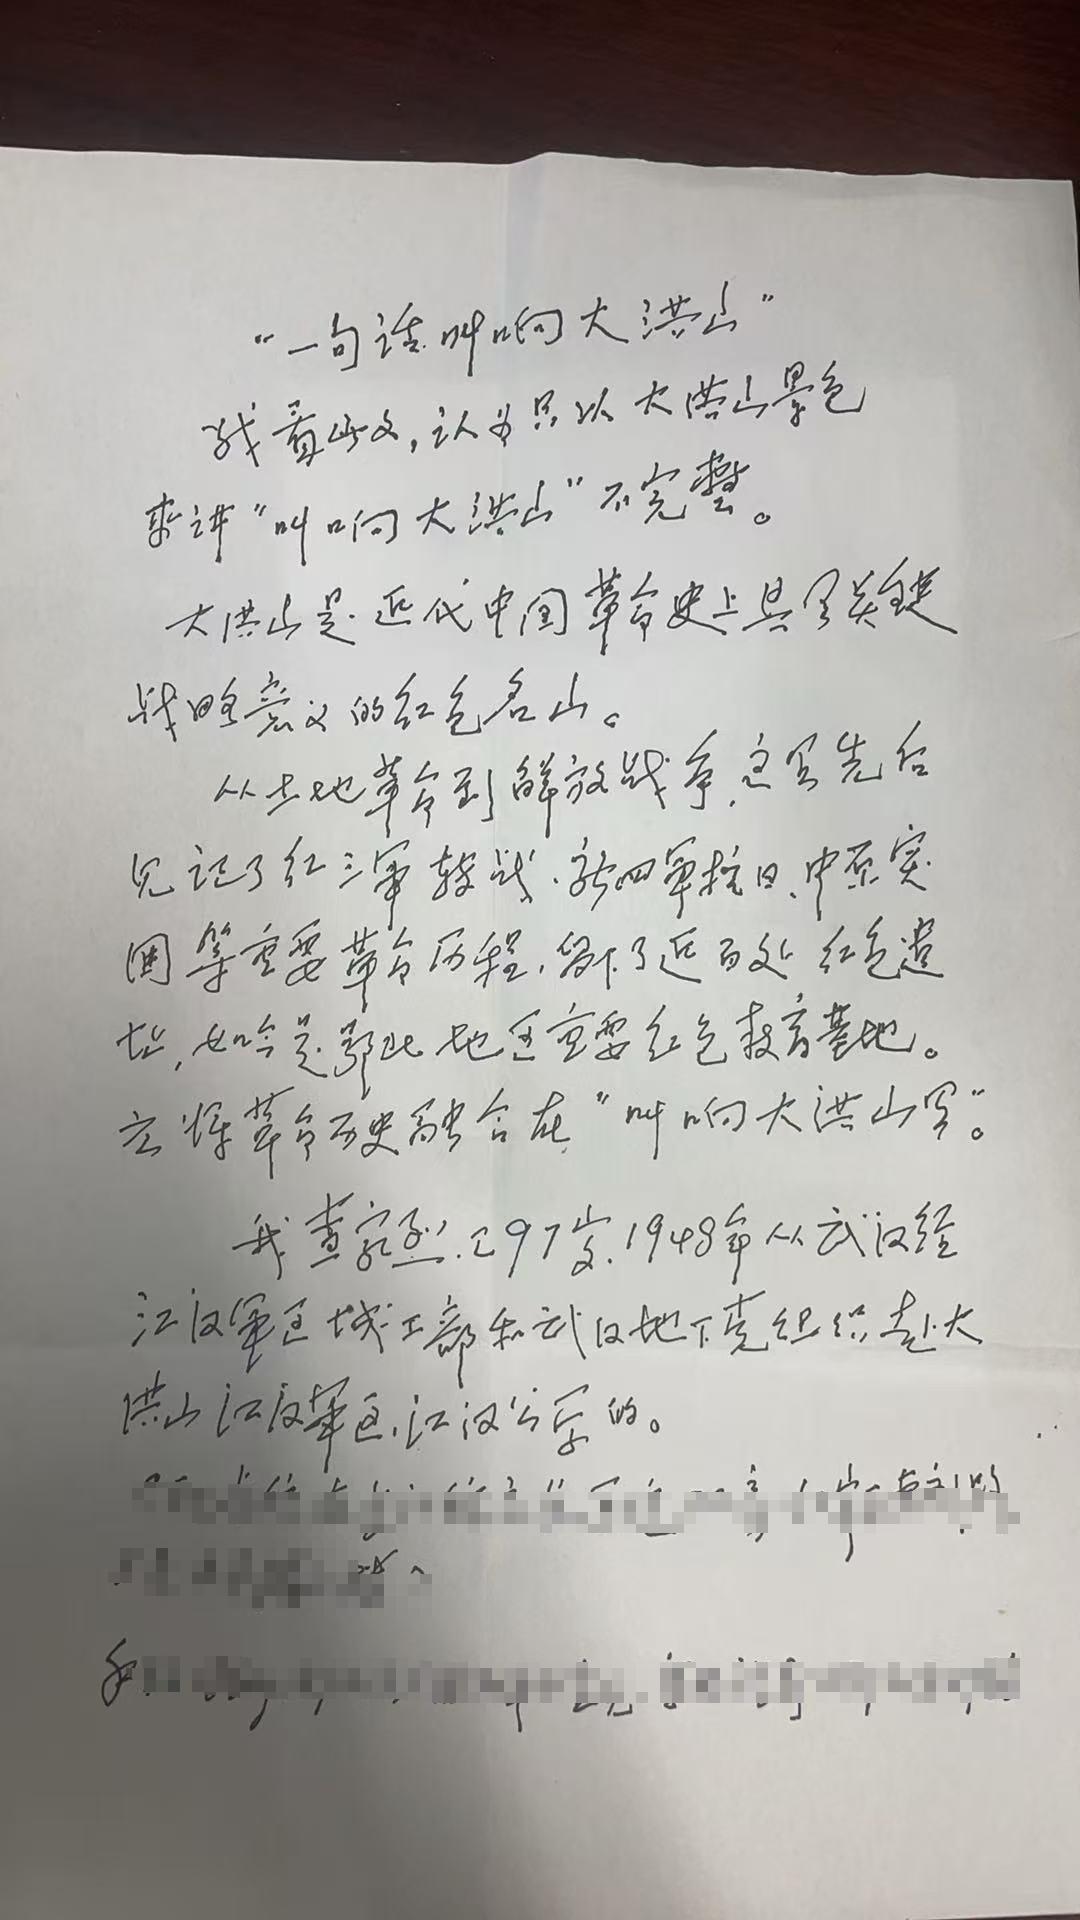 “一句话叫响大洪山”
我看此文,认为只以大洪山景色
来讲“叫响大洪山”不完整。
大洪山是近代中国革命史上具有关键
战略意义的红色名山。
从土地革命到解放战争,这里先后
见证了红三军转战、新四军抗日、中原突
围等重要革命历程,留下了近百处红色遗
址,如今是鄂北地区重要红色教育基地。
应将革命历史融合在“叫响大洪山里”。
我查家烈,已97岁,1948年从武汉经
江汉军区城工部和武汉地下党组织赴大
洪山江汉军区,江汉公学的。